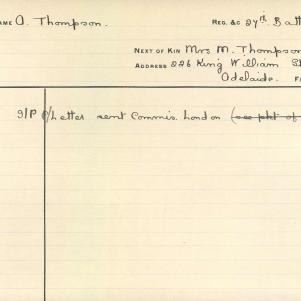 AME A. Thompson. REG. &C 27th. Batt
NEXT OF KIN Mrs M. Thompson
ADDRESS 226 King William St
Adelaide.
9/P Letter sent Commis. London (see pkt of